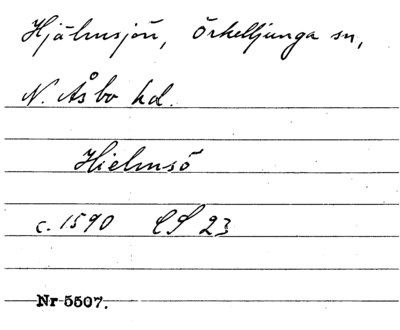 Hjälmsjön, Örkelljunga sn,
N. Åsbo hd.
Hielmsö
c. 1590 CS 23
Nr 5507.